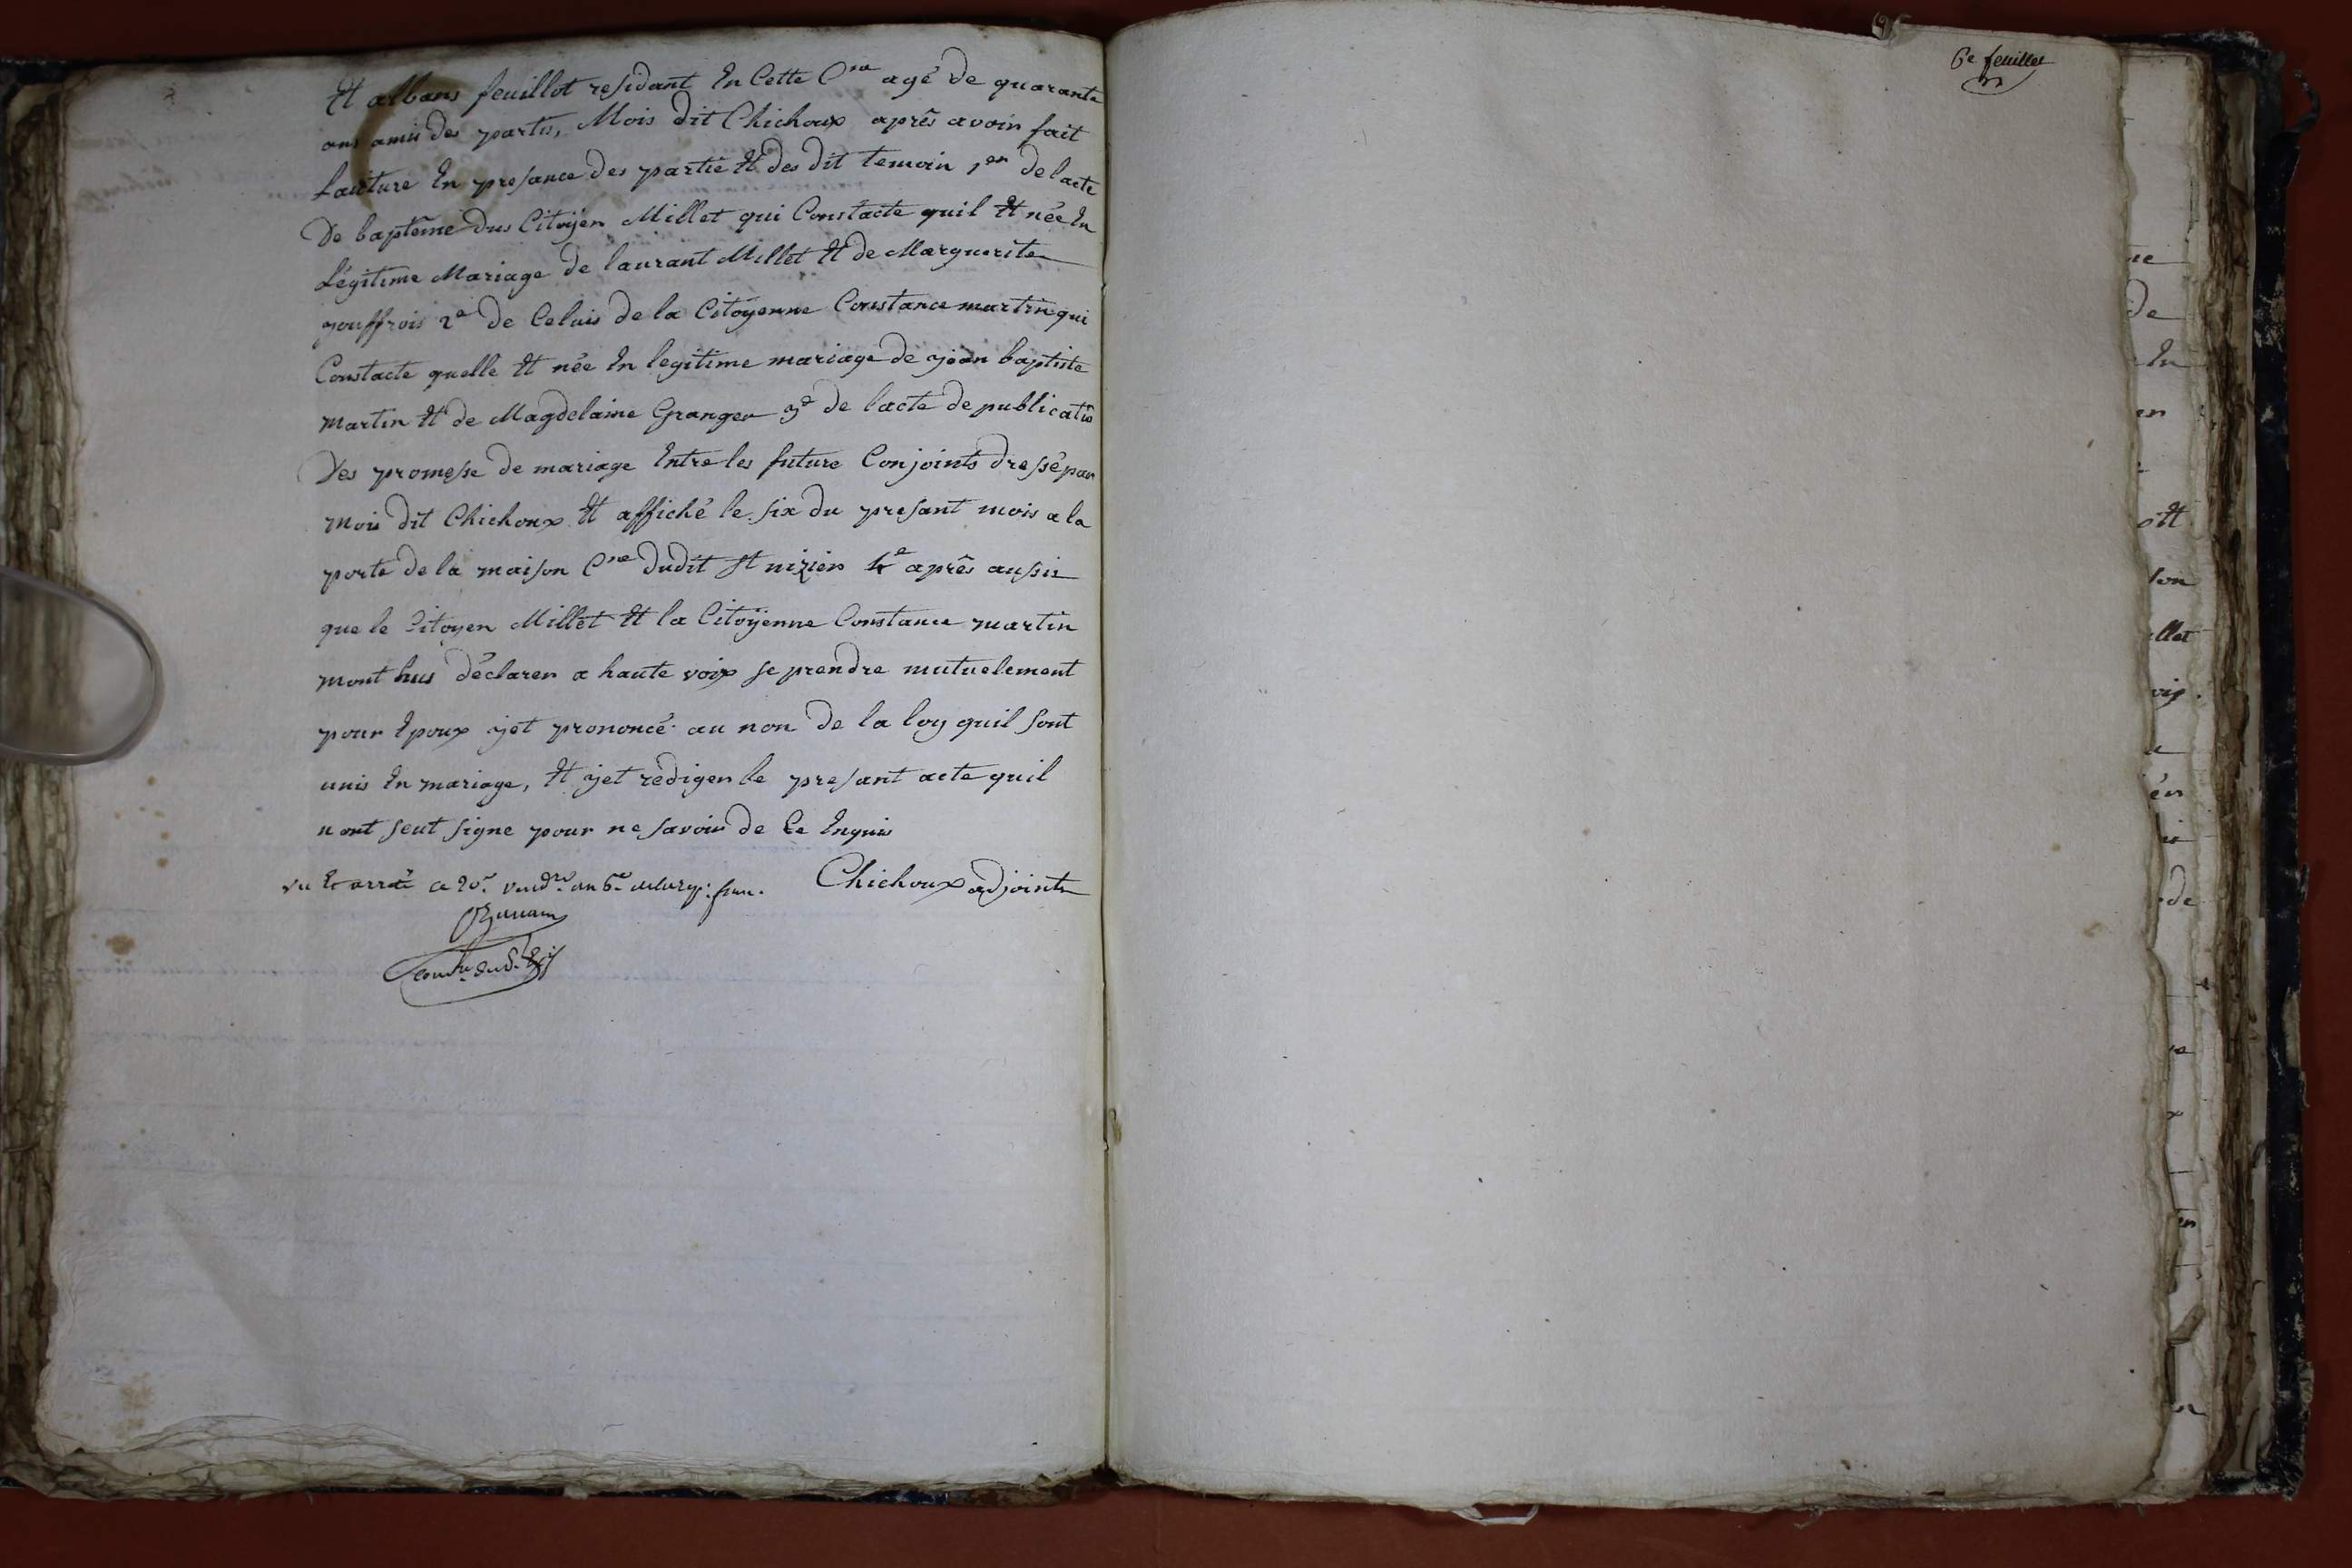 Et albans feuillot residant En Cette Cne agé de quarante
ans amis des partis, Mois dit Chichoux après avoir fait
Lauture En presance des partie Et des dit temoin 1er de lacte
De baptême dus Citoyen Millet qui Constacte quil Et née En
Légitime Mariage de laurant Millet Et de Marguerite
jouffrois 2e de Celuis de la Citoyenne Constance martin qui
Constacte quelle Et née En legitime mariage de jean baptiste
martin Et de Magdelaine Granger 3e de lacte de publicatiõ
Des promesse de mariage Entre les future Conjoints dressé par
mois dit Chichoux Et affiché le six du presant mois a la
porte de la maison Cne dudit St nizier 4e après aussis
que le Citoyen Millet Et la Citoÿenne Constance martin
mont hus déclarer a haute voix se prendre mutuelement
pour Epoux jet prononcé au non de la loy quil sont
unis En mariage, Et jet redigen le presant acte quil
nont seut signe pour ne savoir de Ce Enquis
Chichoux adjoint
vu Et arrété ce 20e vendre an 6e
6e feuillet
ne
de
En
Et
llet
de